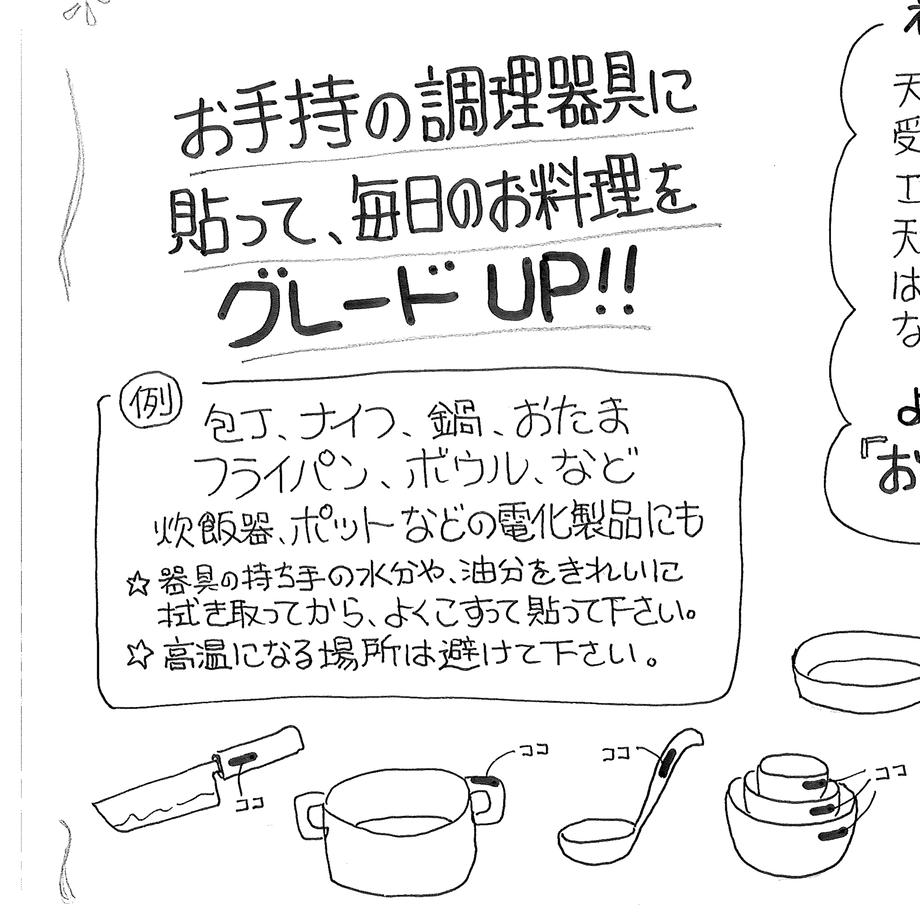 お手持の調理器具に
貼って、毎日のお料理を
グレード UP!!
例
包丁、ナイフ、鍋、おたま
フライパン、ボウル、など
炊飯器、ポットなどの電化製品にも
☆器具の持ち手の水分や、油分をきれいに
拭き取ってから、よくこすって貼って下さい。
☆高温になる場所は避けて下さい。
ココ
ココ
ココ
ココ
天
受
工
天
は
な
よ
『お